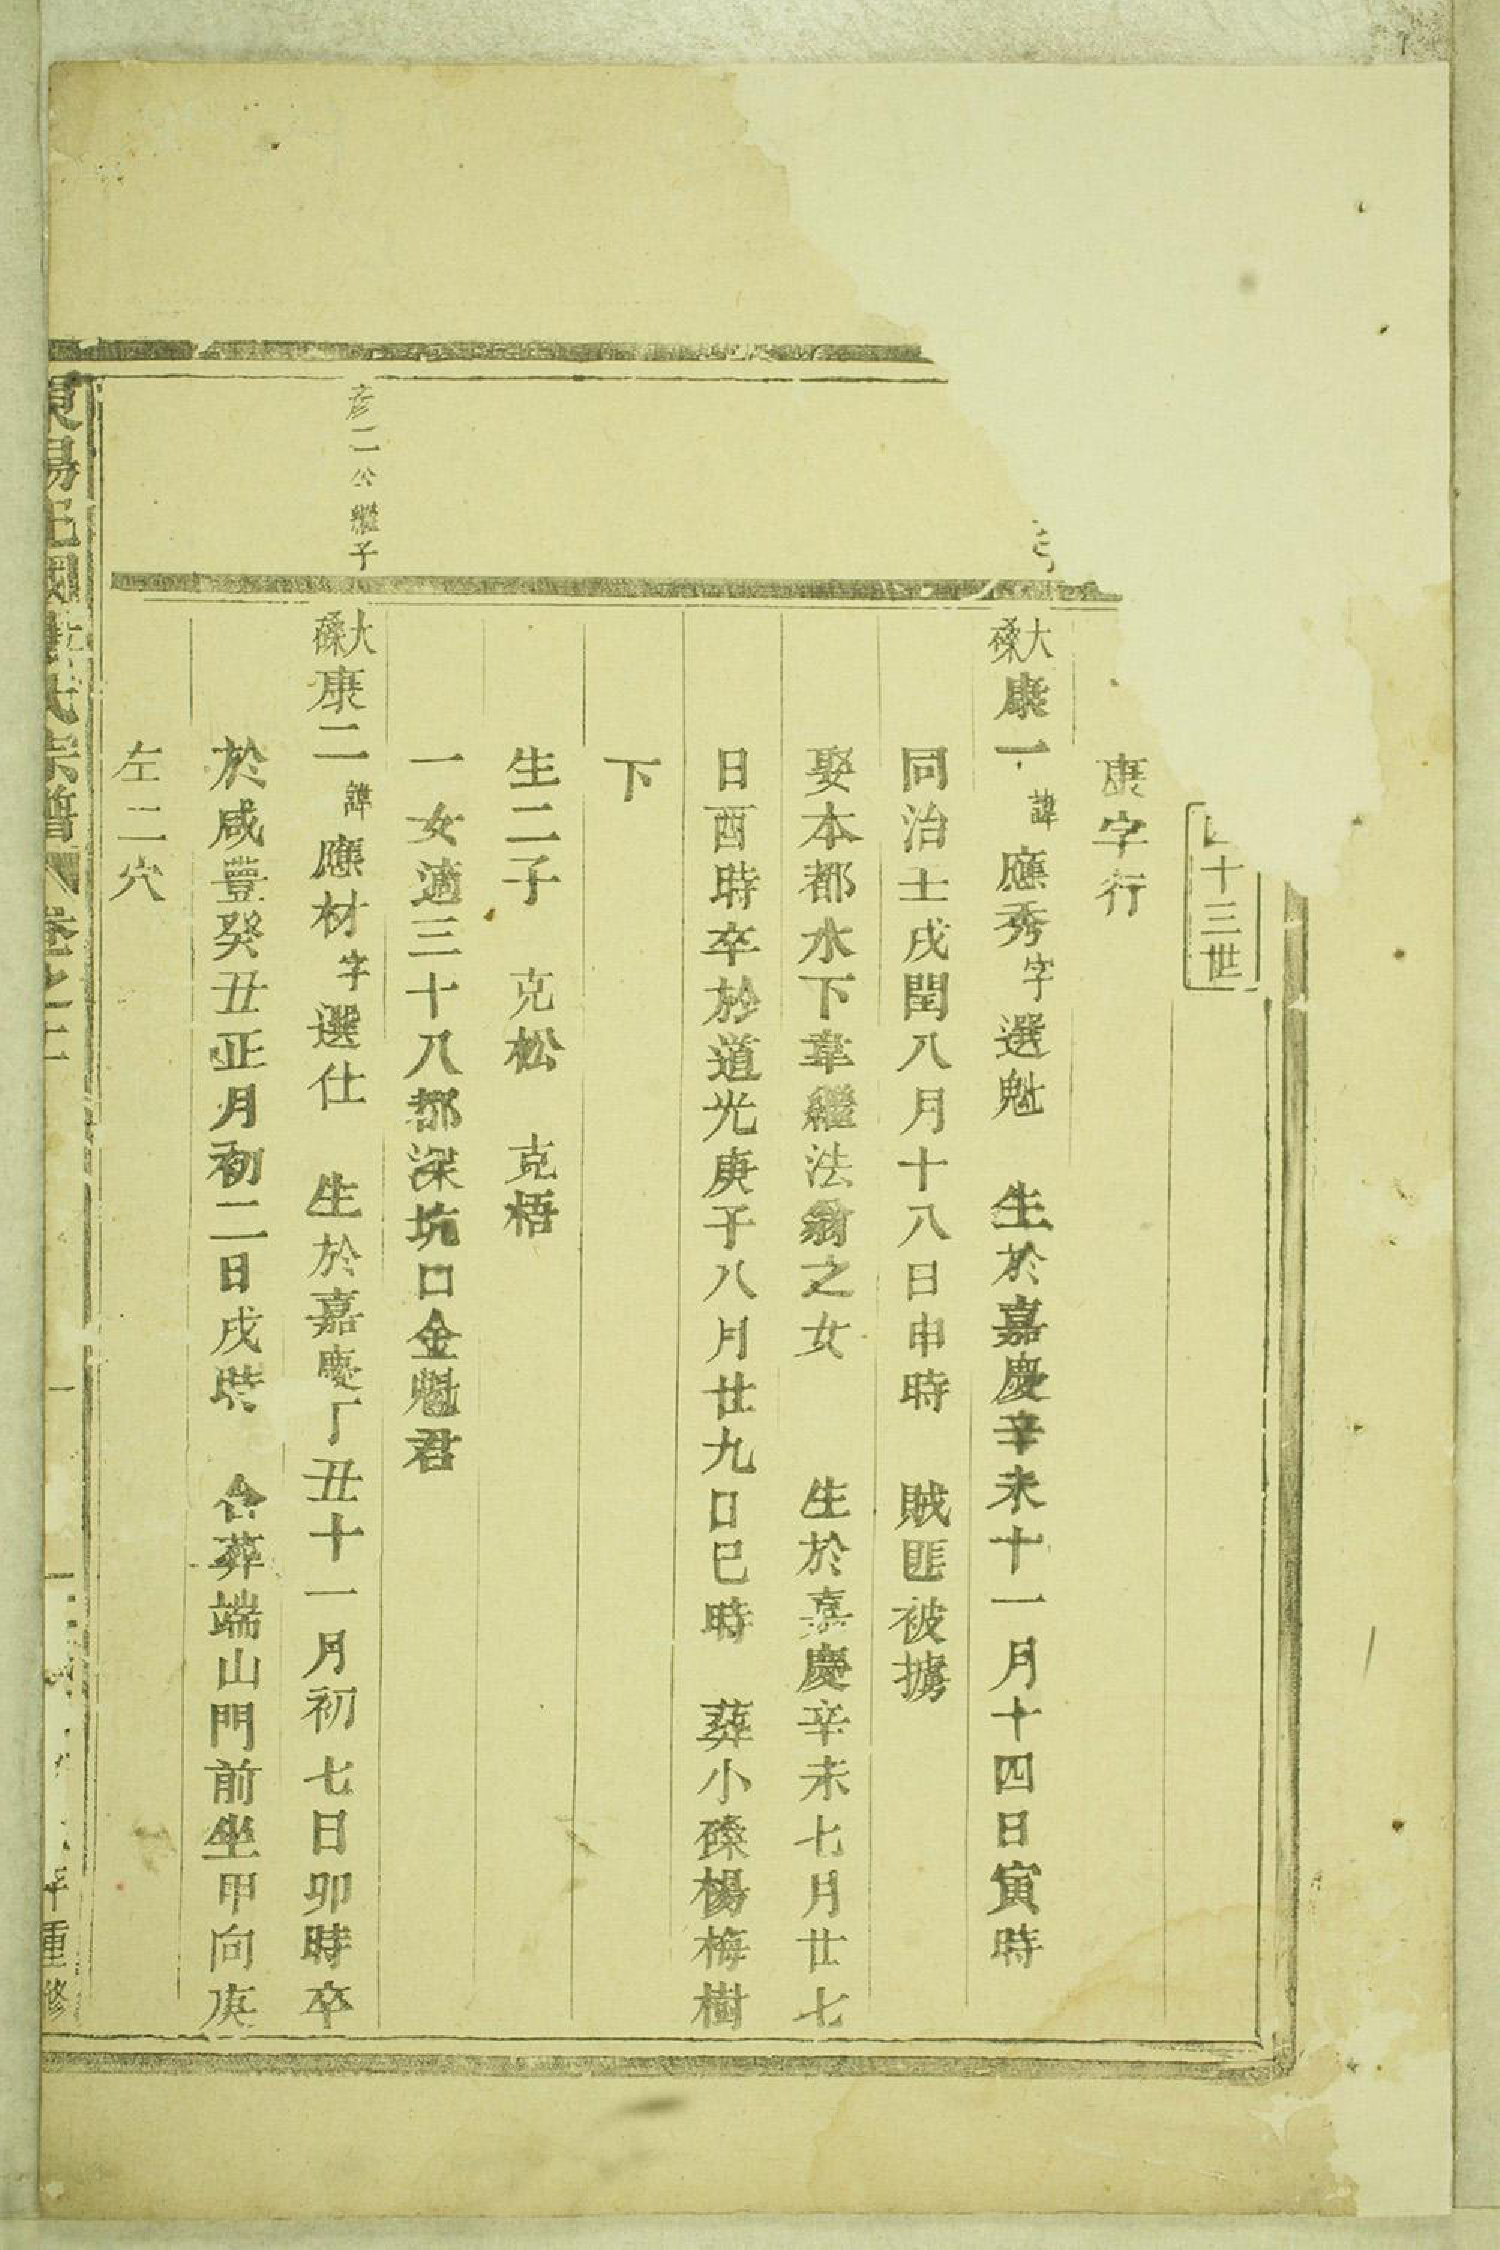 十三世
康字行
大磉康一諱應秀字選魁 生於嘉慶辛未十一月十四日寅時
同治士戌閏八月十八日申時 賊匪被擄
娶本都水下韋繼法翁之女 生於嘉慶辛未七月廿七
日酉時卒於道光庚子八月廿九日巳時 葬小磉楊梅樹
下
生二子 克松 克梧
一女適三十八都深坑口金魁君
彦二公繼子
大磉康二諱應材字選仕 生於嘉慶丁丑十一月初七日卯時卒
於咸豐癸丑正月初二日戌時 合葬端山門前坐甲向庚
左二穴
氏宗譜 卷之二
重修